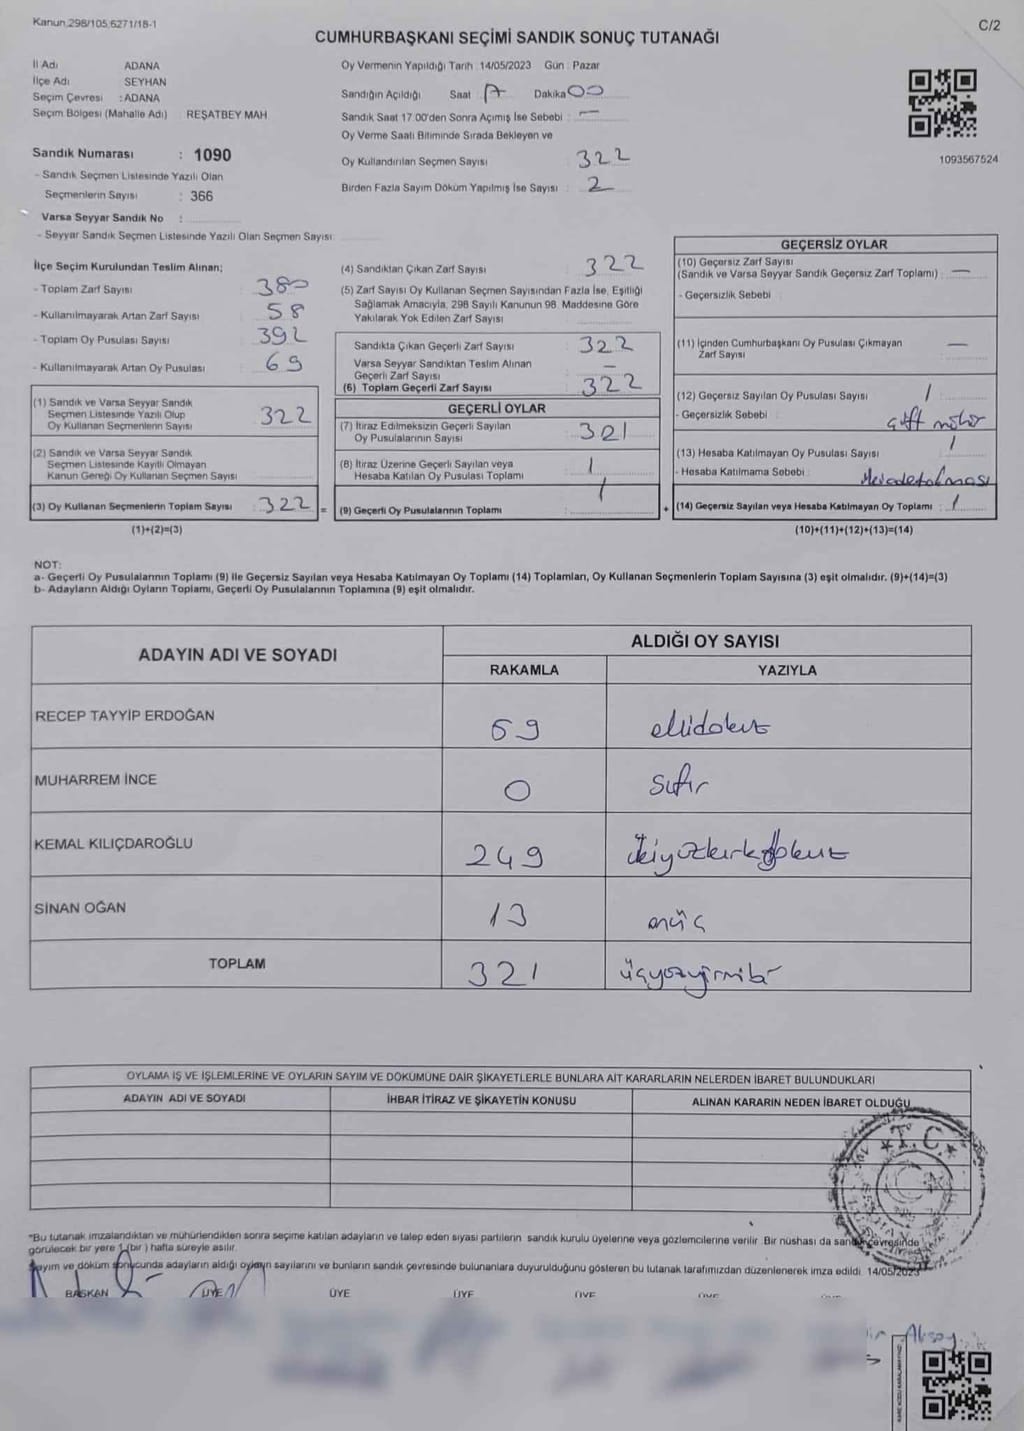 Kanun.298/105,6271/18-1
C/2
CUMHURBAŞKANI SEÇİMİ SANDIK SONUÇ TUTANAĞI
İl Adı ADANA
İlçe Adı SEYHAN
Seçim Çevresi : ADANA
Seçim Bölgesi (Mahalle Adı) REŞATBEY MAH
Sandık Numarası : 1090
- Sandık Seçmen Listesinde Yazılı Olan
Seçmenlerin Sayısı : 366
Varsa Seyyar Sandık No :
- Seyyar Sandık Seçmen Listesinde Yazılı Olan Seçmen Sayısı
Oy Vermenin Yapıldığı Tarih 14/05/2023 Gün : Pazar
Sandığın Açıldığı Saat Dakika 00
Sandık Saat 17.00'den Sonra Açımış İse Sebebi : —
Oy Verme Saati Bitiminde Sırada Bekleyen ve
Oy Kullandırılan Seçmen Sayısı 322
Birden Fazla Sayım Döküm Yapılmış İse Sayısı : 2
1093567524
İlçe Seçim Kurulundan Teslim Alınan;
- Toplam Zarf Sayısı 380
- Kullanılmayarak Artan Zarf Sayısı 58
- Toplam Oy Pusulası Sayısı 392
- Kullanılmayarak Artan Oy Pusulası 69
(1) Sandık ve Varsa Seyyar Sandık
Seçmen Listesinde Yazılı Olup
Oy Kullanan Seçmenlerin Sayısı 322
(2) Sandık ve Varsa Seyyar Sandık
Seçmen Listesinde Kayıtlı Olmayan
Kanun Gereği Oy Kullanan Seçmen Sayısı
(3) Oy Kullanan Seçmenlerin Toplam Sayısı : 322 =
(1)+(2)=(3)
(4) Sandıktan Çıkan Zarf Sayısı 322
(5) Zarf Sayısı Oy Kullanan Seçmen Sayısından Fazla İse, Eşitliği
Sağlamak Amacıyla, 298 Sayılı Kanunun 98. Maddesine Göre
Yakılarak Yok Edilen Zarf Sayısı
Sandıkta Çıkan Geçerli Zarf Sayısı 322
Varsa Seyyar Sandıktan Teslim Alınan
Geçerli Zarf Sayısı —
(6) Toplam Geçerli Zarf Sayısı 322
GEÇERLİ OYLAR
(7) İtiraz Edilmeksizin Geçerli Sayılan
Oy Pusulalarının Sayısı 321
(8) İtiraz Üzerine Geçerli Sayılan veya
Hesaba Katılan Oy Pusulası Toplamı 1
(9) Geçerli Oy Pusulalarının Toplamı : 1 +
GEÇERSİZ OYLAR
(10) Geçersiz Zarf Sayısı
(Sandık ve Varsa Seyyar Sandık Geçersiz Zarf Toplamı) : —
- Geçersizlik Sebebi
(11) İçinden Cumhurbaşkanı Oy Pusulası Çıkmayan
Zarf Sayısı —
(12) Geçersiz Sayılan Oy Pusulası Sayısı 1
- Geçersizlik Sebebi : çift mühür
(13) Hesaba Katılmayan Oy Pusulası Sayısı 1
- Hesaba Katılmama Sebebi
(14) Geçersiz Sayılan veya Hesaba Katılmayan Oy Toplamı : 1
(10)+(11)+(12)+(13)=(14)
NOT:
a- Geçerli Oy Pusulalarının Toplamı (9) ile Geçersiz Sayılan veya Hesaba Katılmayan Oy Toplamı (14) Toplamları, Oy Kullanan Seçmenlerin Toplam Sayısına (3) eşit olmalıdır. (9)+(14)=(3)
b- Adayların Aldığı Oyların Toplamı, Geçerli Oy Pusulalarının Toplamına (9) eşit olmalıdır.
ADAYIN ADI VE SOYADI
ALDIĞI OY SAYISI
RAKAMLA YAZIYLA
RECEP TAYYİP ERDOĞAN 59 ellidokuz
MUHARREM İNCE 0 sıfır
KEMAL KILIÇDAROĞLU 249 ikiyüzkırkdokuz
SİNAN OĞAN 13 onüç
TOPLAM 321 üçyüzyirmibir
OYLAMA İŞ VE İŞLEMLERİNE VE OYLARIN SAYIM VE DÖKÜMÜNE DAİR ŞİKAYETLERLE BUNLARA AİT KARARLARIN NELERDEN İBARET BULUNDUKLARI
ADAYIN ADI VE SOYADI İHBAR İTİRAZ VE ŞİKAYETİN KONUSU ALINAN KARARIN NEDEN İBARET OLDUĞU
T.C.
*Bu tutanak imzalandıktan ve mühürlendikten sonra seçime katılan adayların ve talep eden siyasi partilerin sandık kurulu üyelerine veya gözlemcilerine verilir. Bir nüshası da sandık çevresinde
görülecek bir yere 1 (bir ) hafta süreyle asılır.
Sayım ve döküm sonucunda adayların aldığı oyların sayılarını ve bunların sandık çevresinde bulunanlara duyurulduğunu gösteren bu tutanak tarafımızdan düzenlenerek imza edildi. 14/05/2023
BAŞKAN ÜYE ÜYE ÜYE ÜYE
Aksoy